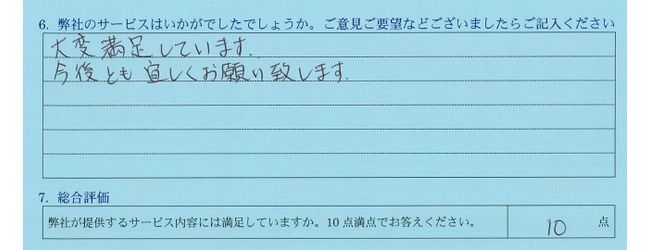 6. 弊社のサービスはいかがでしたでしょうか。ご意見ご要望などございましたらご記入ください
大変満足しています.
今後とも宜しくお願い致します.
7. 総合評価
弊社が提供するサービス内容には満足していますか。10点満点でお答えください。 10 点